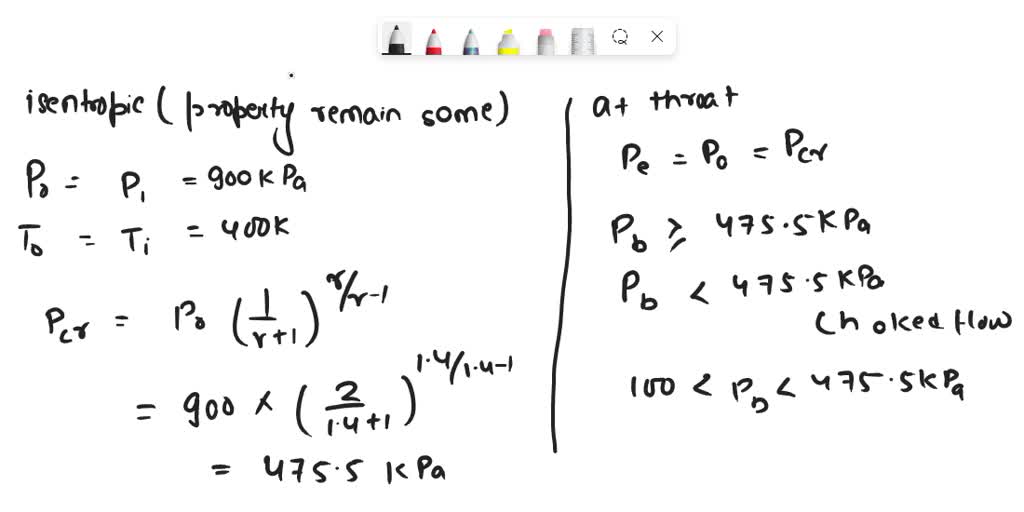 isentropic (property remain some)
P₀ = P₁ = 900 kPa
T₀ = Ti = 400K
Pcr = P₀ (1/r+1)^r/r-1
= 900 × (2/1.4+1)^1.4/1.4-1
= 475.5 kPa
at throat
Pe = P₀ = Pcr
Pb ≥ 475.5 KPa
Pb < 475.5 KPa
Choked flow
100 < Pb < 475.5 kPa